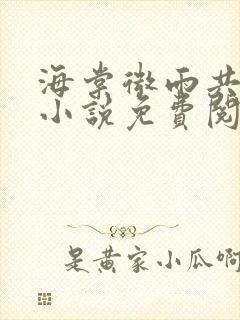 海棠微雨共
小說免費閱
是黄家小瓜啊